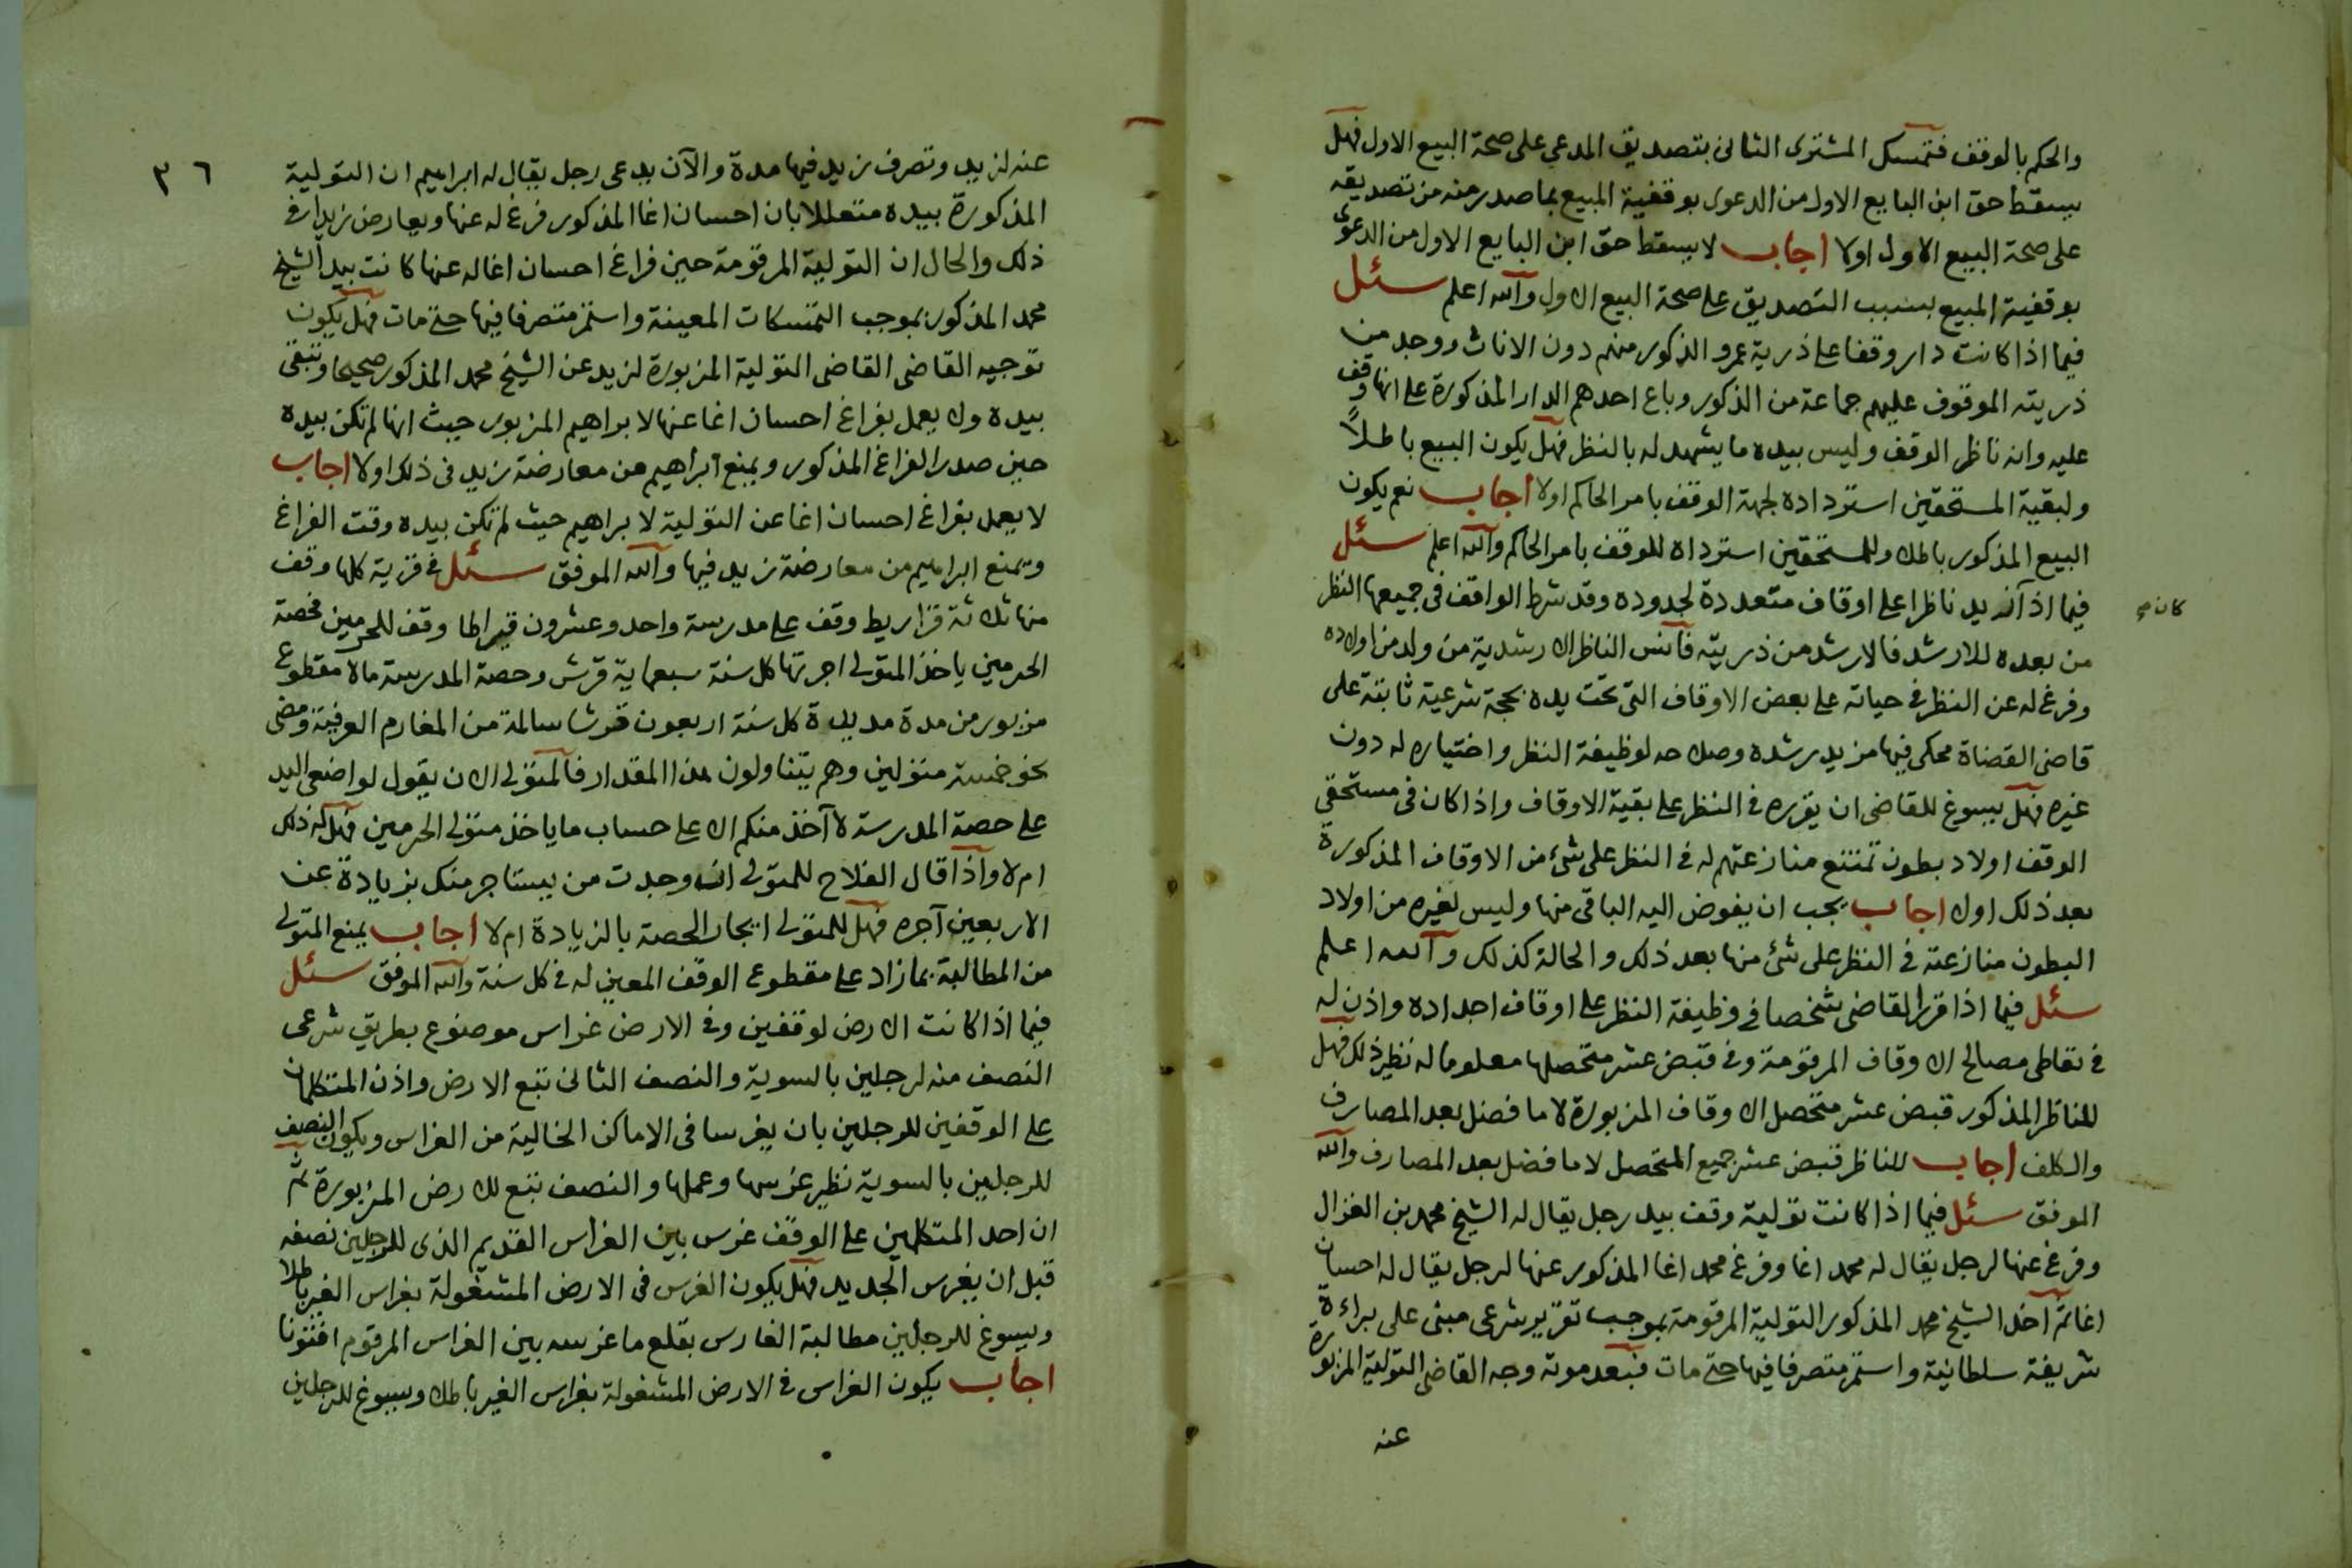 والحكم بالوقف فتمسك المشترى الثانى بتصديق المدعى على صحة البيع الاول فهل
يسقط حق ابن البايع الاول من الدعوى بوقفية المبيع بما صدر منه من تصديقه
على صحة البيع الاول اولا اجاب لا يسقط حق ابن البايع الاول من الدعوى
بوقفية المبيع بسبب التصديق على صحة البيع الاول والله اعلم سئل
فيما اذا كانت دار وقفا على ذرية عمرو الذكور منهم دون الاناث ووجد من
ذريته الموقوف عليهم جماعة من الذكور وباع احدهم الدار المذكورة على انها وقف
عليه وانه ناظر الوقف وليس بيده ما يشهد له بالنظر فهل يكون البيع باطلاً
ولبقية المستحقين استرداده لجهة الوقف بامر الحاكم اولا اجاب نعم يكون
البيع المذكور باطلا وللمستحقين استرداه للوقف بامر الحاكم والله اعلم سئل
فيما اذا زيد ناظرا على اوقاف متعددة لجدوده وقد شرط الواقف فى جميعها النظر
كان صح
من بعده للارشد فالارشد من ذريته فآنس الناظر الارشدية من ولد من اولاده
وفرغ له عن النظر فى حياته على بعض الاوقاف التى تحت يده بحجة شرعية ثابتة على
قاضى القضاة محكى فيها مزيد رشده وصلاحه لوظيفة النظر واختياره له دون
غيره فهل يسوغ للقاضى ان يقرره فى النظر على بقية الاوقاف واذا كان فى مستحقى
الوقف اولاد بطون تمتنع منازعتهم له فى النظر على شئ من الاوقاف المذكورة
بعد ذلك اولا اجاب يجب ان يفوض اليه الباقى منها وليس لغيره من اولاد
البطون منازعته فى النظر على شئ منها بعد ذلك والحالة كذلك والله اعلم
سئل فيما اذا قرر القاضى شخصا فى وظيفة النظر على اوقاف اجداده واذن له
فى تعاطى مصالح الاوقاف المرقومة وفى قبض عشر متحصلها معلوما له نظير ذلك فهل
للناظر المذكور قبض عشر متحصل الاوقاف المزبورة لا ما فضل بعد المصارف
والكلف اجاب للناظر قبض عشر جميع المتحصل لا ما فضل بعد المصارف والله
الموفق سئل فيما اذا كانت تولية وقف بيد رجل يقال له الشيخ محمد بن الغزال
وفرغ عنها لرجل يقال له محمد اغا وفرغ محمد اغا المذكور عنها لرجل يقال له احسان
اغا ثم آخذ الشيخ محمد المذكور التولية المرقومة بموجب تقرير شرعى مبنى على براءة
شريفة سلطانية واستمر متصرفا فيها حتى مات فبعد موته وجه القاضى التولية المزبورة
عنه
٣٦
عنه لزيد وتصرف زيد فيها مدة والآن يدعى رجل يقال له ابراهيم ان التولية
المذكورة بيده متعللا بان احسان اغا المذكور فرغ له عنها ويعارض زيدا فى
ذلك والحال ان التولية المرقومة حين فراغ احسان اغا له عنها كانت بيد الشيخ
محمد المذكور بموجب التمسكات المعينة واستمر متصرفا فيها حتى مات فهل يكون
توجيه القاضى القاضى التولية المزبورة لزيد عن الشيخ محمد المذكور صحيحا وتبقى
بيده ولا يعمل بفراغ احسان اغا عنها لابراهيم المزبور حيث انها لم تكن بيده
حين صدر الفراغ المذكور ويمنع ابراهيم من معارضة زيد فى ذلك اولا اجاب
لا يعمل بفراغ احسان اغا عن التولية لابراهيم حيث لم تكن بيده وقت الفراغ
ويمنع ابراهيم من معارضة زيد فيها والله الموفق سئل فى قرية كلها وقف
منها ثلاثة قراريط وقف على مدرسة واحد وعشرون قيراطا وقف للحرمين فحصة
الحرمين ياخذ المتولى اجرتها كل سنة سبعماية قرش وحصة المدرسة مالا مقطوع
مزبور من مدة مديدة كل سنة اربعون قرشا سالمة من المغارم العرفية ومضى
نحو خمسة متولين وهم يتناولون هذا المقدار فالمتولى الان يقول لواضعى اليد
على حصة المدرسة لا آخذ منكم الا على حساب ما ياخذ متولى الحرمين فهل له ذلك
ام لا واذا قال الفلاح للمتولى ان وجدت من يستاجر منك بزيادة عن
الاربعين آجره فهل للمتولى ايجار الحصة بالزيادة ام لا اجاب يمنع المتولى
من المطالبة بما زاد على مقطوع الوقف المعين له فى كل سنة والله الموفق سئل
فيما اذا كانت الارض لوقفين وفى الارض غراس موضوع بطريق شرعى
النصف منه لرجلين بالسوية والنصف الثانى تبع الارض واذن المتكلمان
على الوقفين للرجلين بان يغرسا فى الاماكن الخالية من الغراس ويكون النصف
للرجلين بالسوية نظير غرسها وعملها والنصف تبع للارض المزبورة ثم
ان احد المتكلمين على الوقف غرس بين الغراس القديم الذى للرجلين نصفه
قبل ان يغرس الجديد فهل يكون الغرس فى الارض المشغولة بغراس الغير باطلا
ويسوغ للرجلين مطالبة الغارس بقلع ما غرسه بين الغراس المرقوم افتونا
اجاب يكون الغراس فى الارض المشغولة بغراس الغير باطلا ويسوغ للرجلين